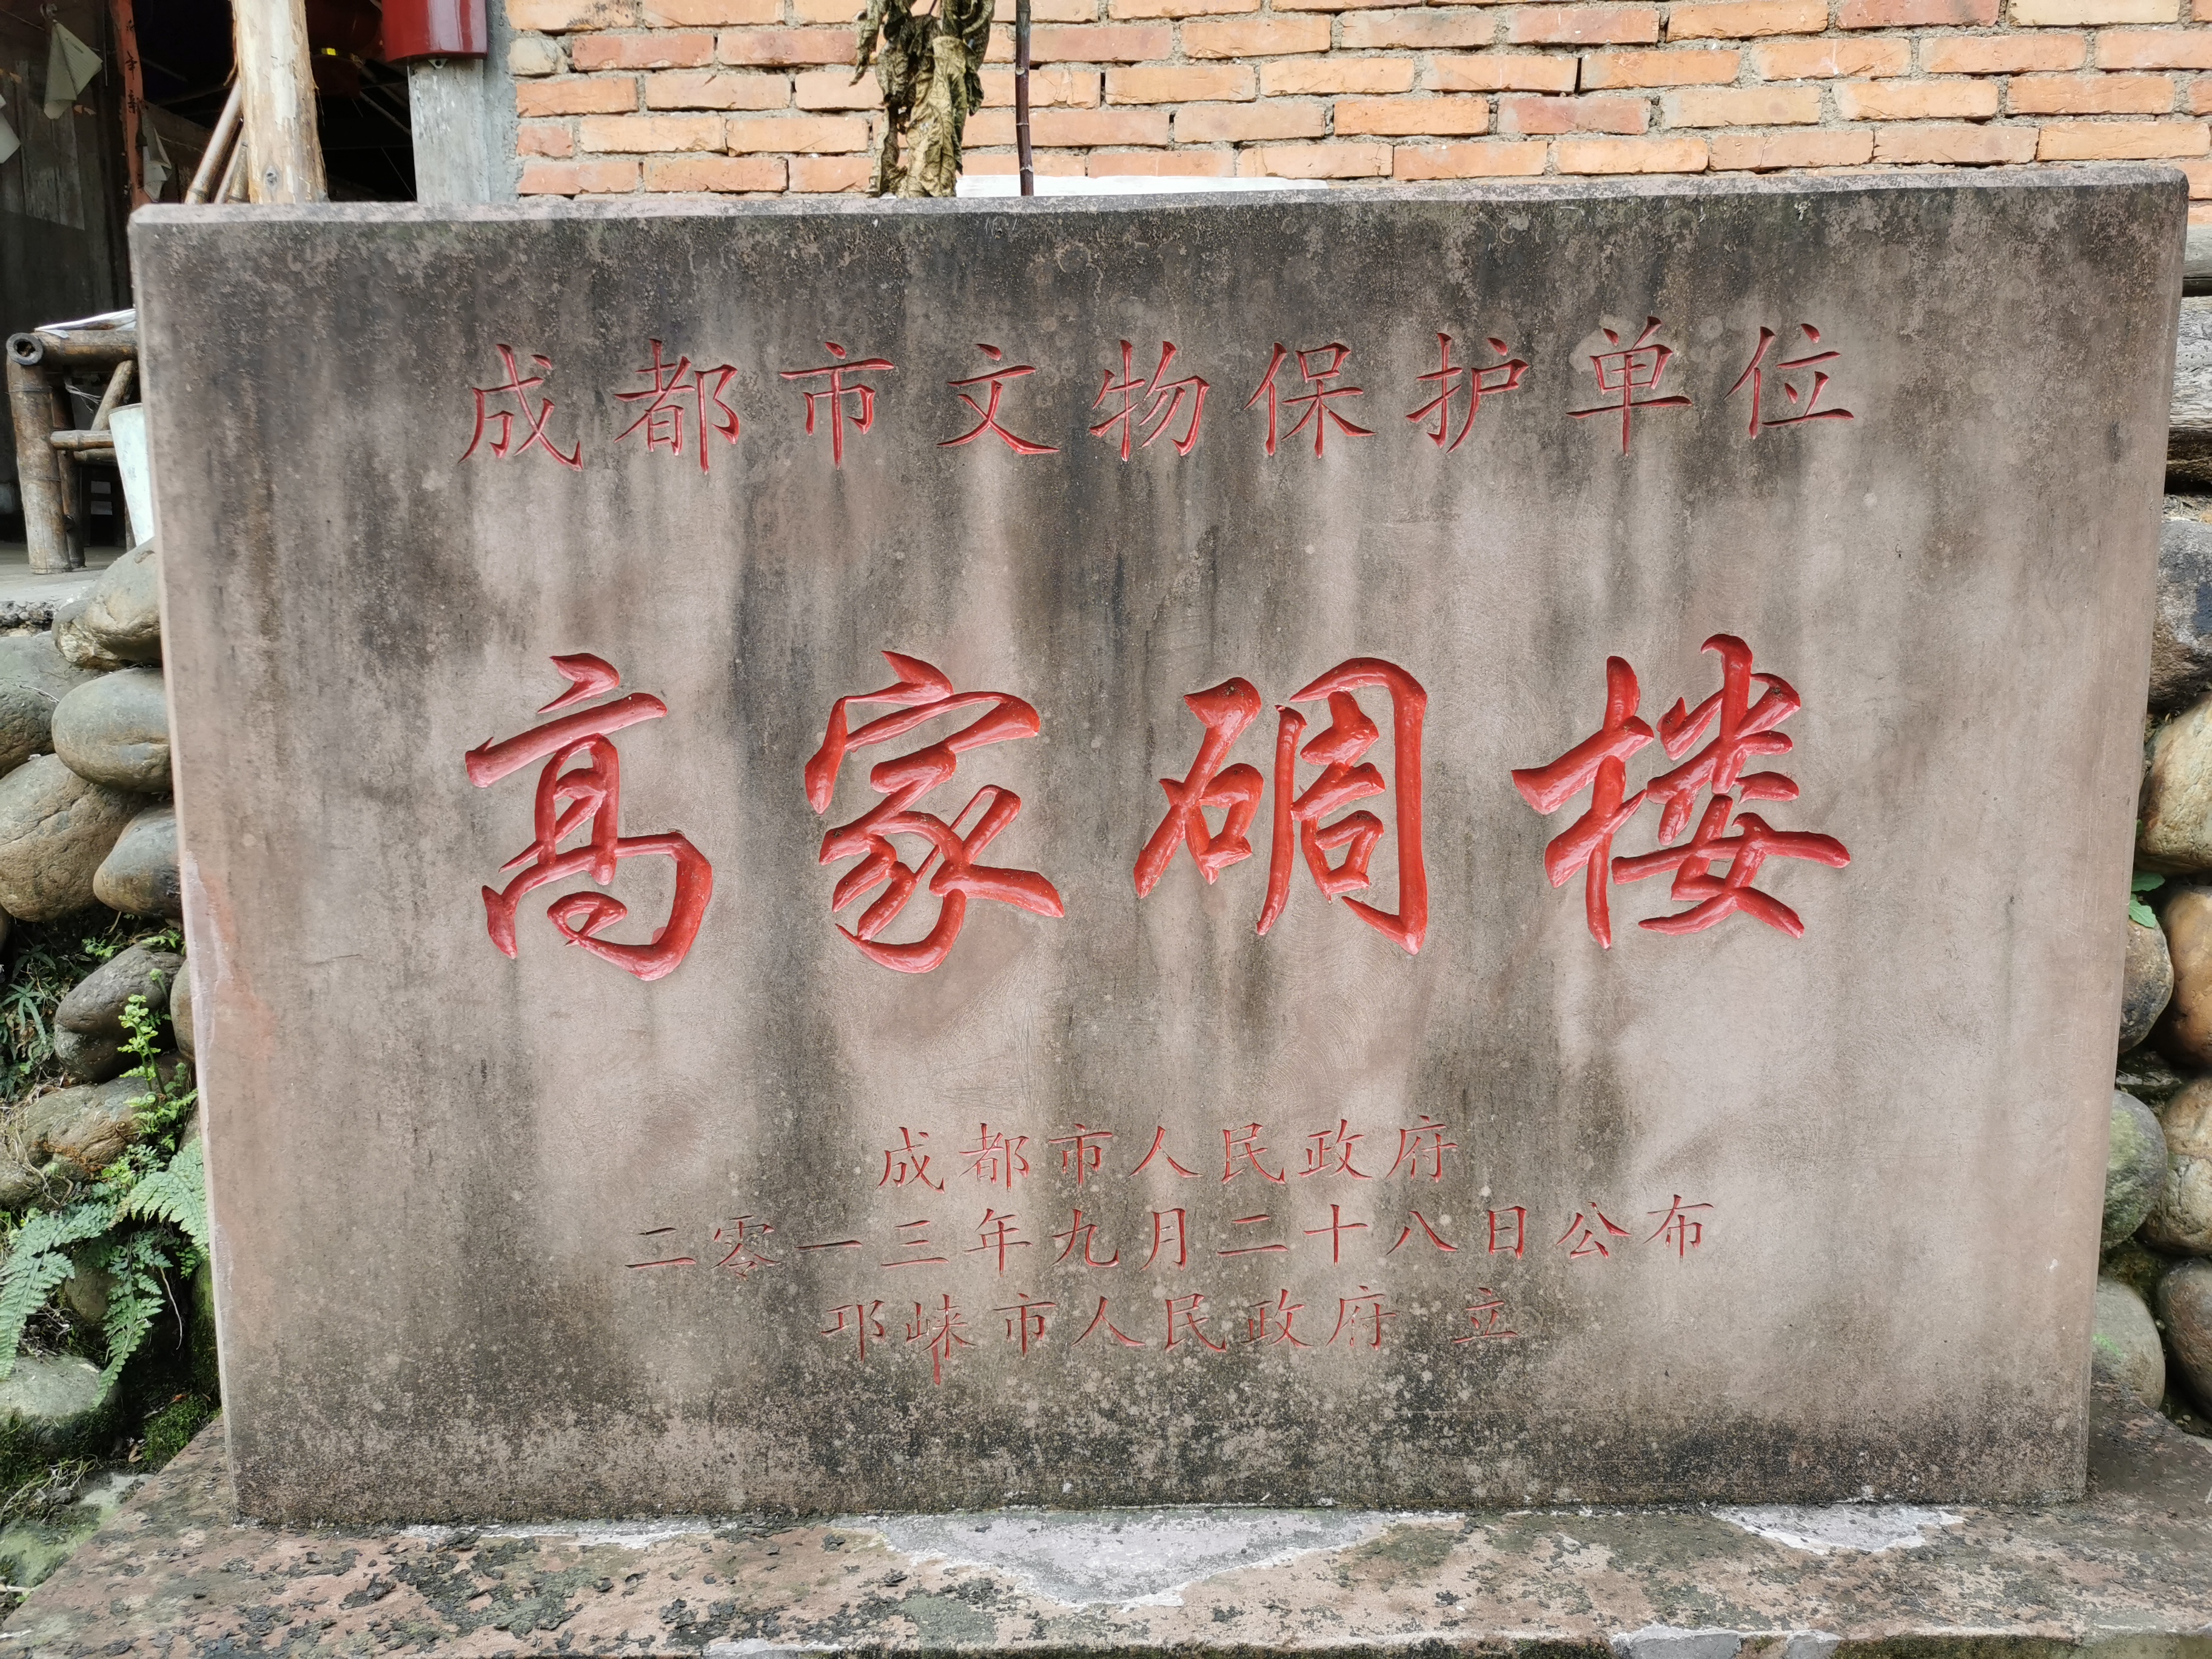 成都市文物保护单位
高家碉楼
成都市人民政府
二零一三年九月二十八日公布
邛崃市人民政府 立